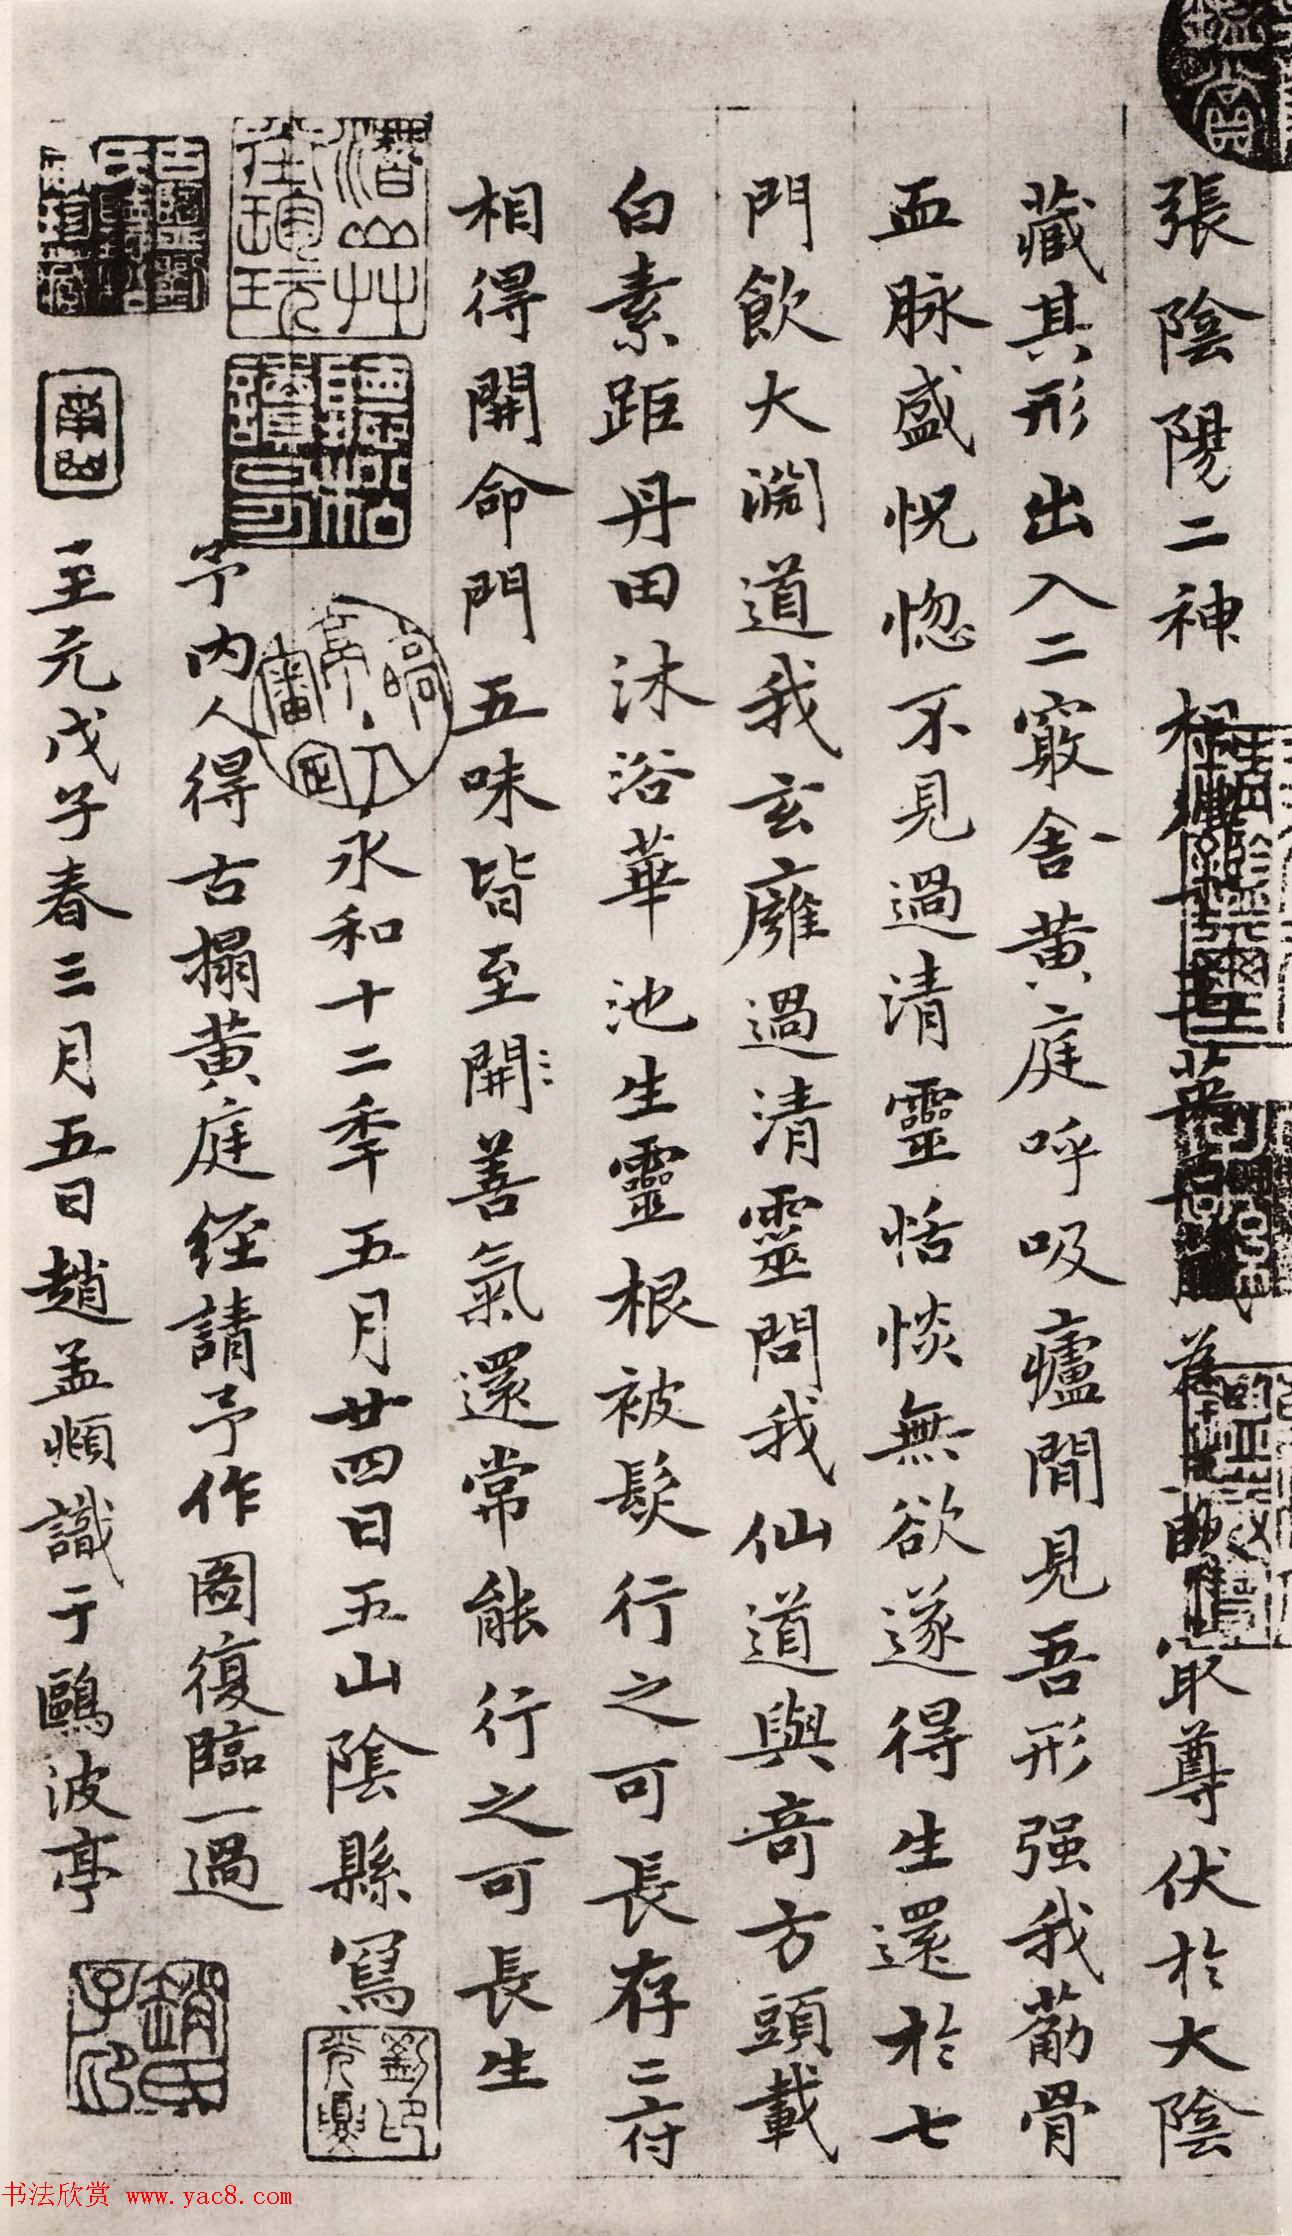 張陰陽二神相
最尊伏於大陰
藏其形出入二竅舍黄庭呼吸廬閒見吾形强我筋骨
血脉盛怳惚不見過清靈恬惔無欲遂得生還於七
門飲大淵道我玄廱過清靈問我仙道與奇方頭載
白素距丹田沐浴華池生靈根被髮行之可長存二府
相得開命門五味皆至開〻善氣還常能行之可長生
永和十二年五月廿四日五山陰縣寫
予内人得古搨黄庭經請予作圖復臨一過
至元戊子春三月五日趙孟頫識于鷗波亭
趙氏子昂
书法欣赏 www.yac8.com